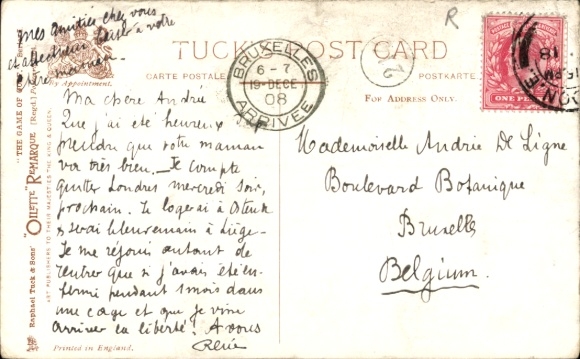 mes amitiés chez vous
et affectueux baiser à votre
chère maman.
TUCK'S POST CARD
CARTE POSTALE
POSTKARTE
By Appointment.
FOR ADDRESS ONLY.
BRUXELLES
6 - 7
19 DECE
08
ARRIVEE
R
18
ONE PENNY
"THE GAME OF
Raphael Tuck & Sons' "OILETTE" REMARQUE (Regd.)
ART PUBLISHERS TO THEIR MAJESTIES THE KING & QUEEN
Ma chère André
Que j'ai été heureux
prendre que votre maman
va très bien. Je compte
quitter Londres mercredi soir,
prochain. Je logerai à Ostende
& serai là à Liège.
Je me réjouis autant de
rentrer que si j'avais été en-
fermé pendant 1 mois dans
une cage et que je vive
arriver la liberté! A vous
René
Mademoiselle Andrée De Ligne
Boulevard Botanique
Bruxelles
Belgium.
Printed in England.